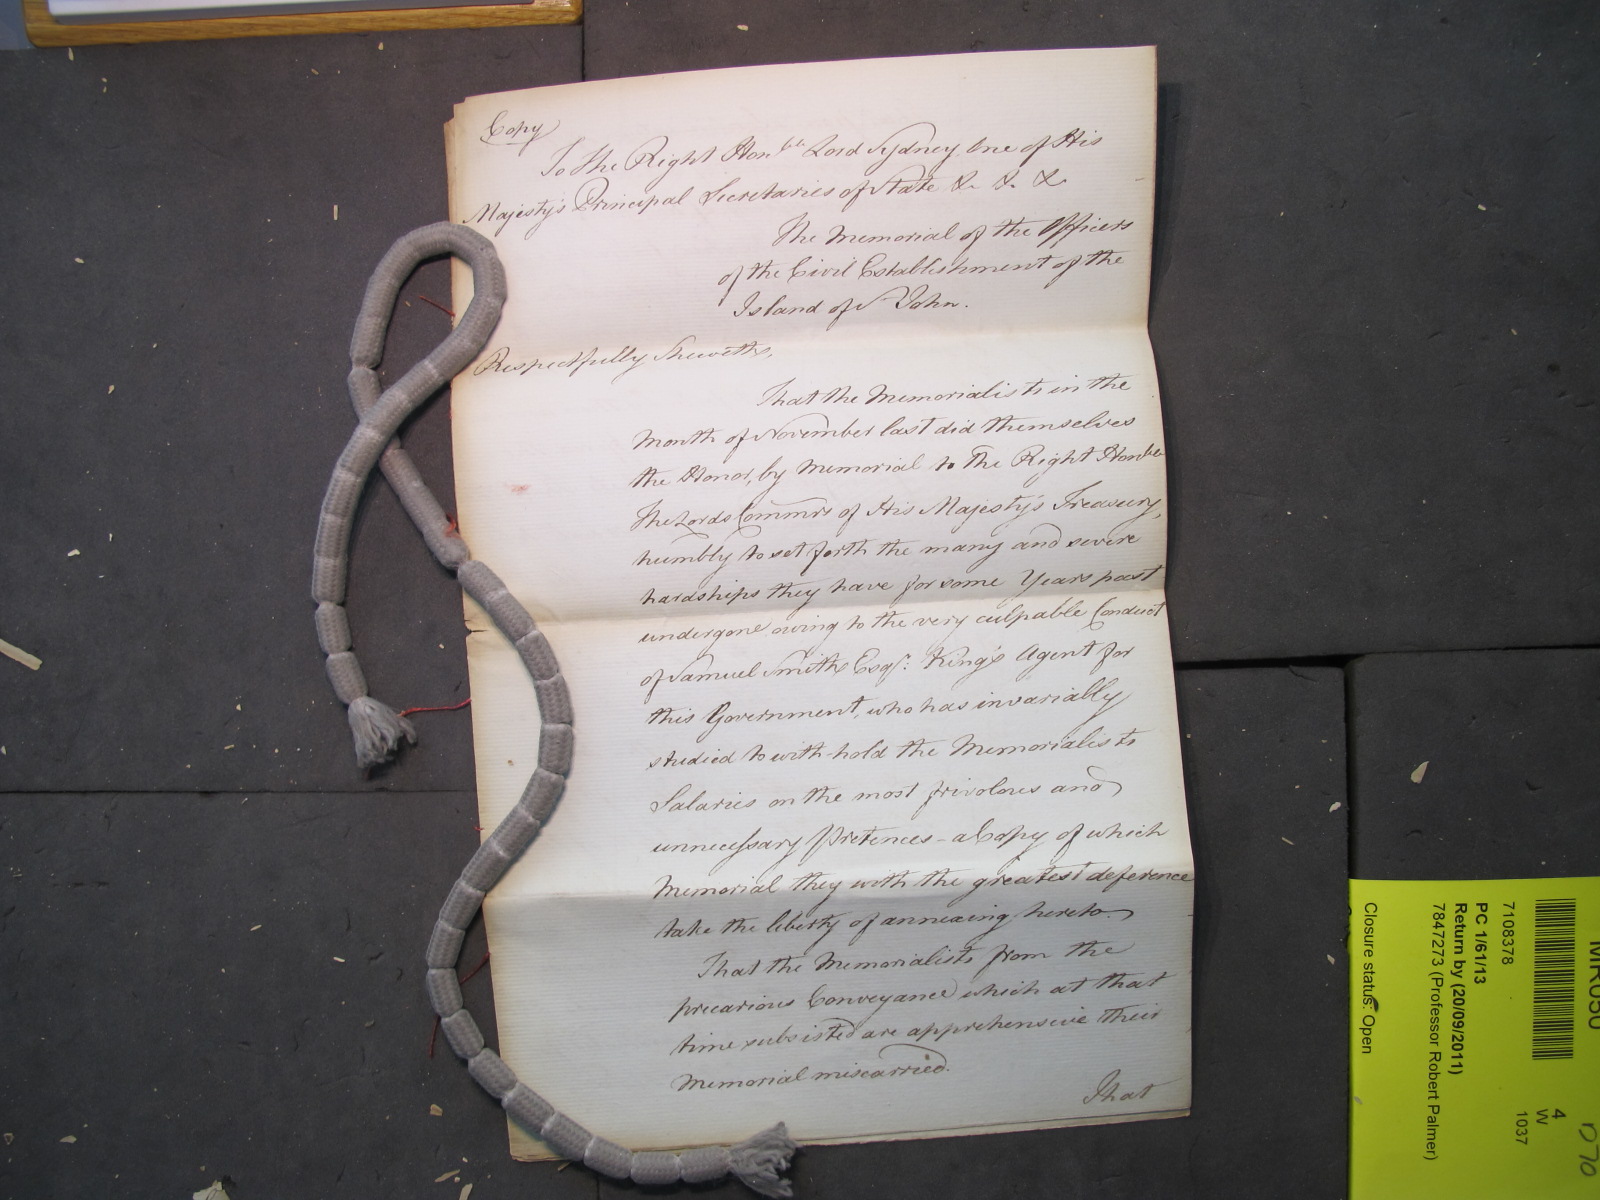 Copy
To The Right Honble Lord Sydney One of His
Majesty's Principal Secretaries of State &. &. &.
The Memorial of the Officers
of the Civil Establishment of the
Island of St John.
Respectfully Sheweth,
That the Memorialists in the
Month of November last did themselves
the Honor, by Memorial to The Right Honble
The Lords Commrs of His Majesty's Treasury,
humbly to set forth the many and severe
hardships they have for some Years past
undergone owing to the very culpable Conduct
of Samuel Smith Esqr: King's Agent for
this Government, who has invariably
studied to with-hold the Memorialists
Salaries on the most frivolous and
unnecessary Pretences - a Copy of which
Memorial they with the greatest deference
take the liberty of annexing hereto.
That the Memorialists from the
precarious Conveyance which at that
time subsisted are apprehensive their
Memorial miscarried.
That
7108378
PC 1/61/13
Return by (20/09/2011)
7847273 (Professor Robert Palmer)
Closure status: Open
4
W
1037
D70